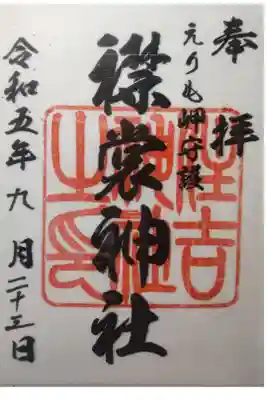 奉拝
えりも岬守護
襟裳神社
令和五年九月二十三日